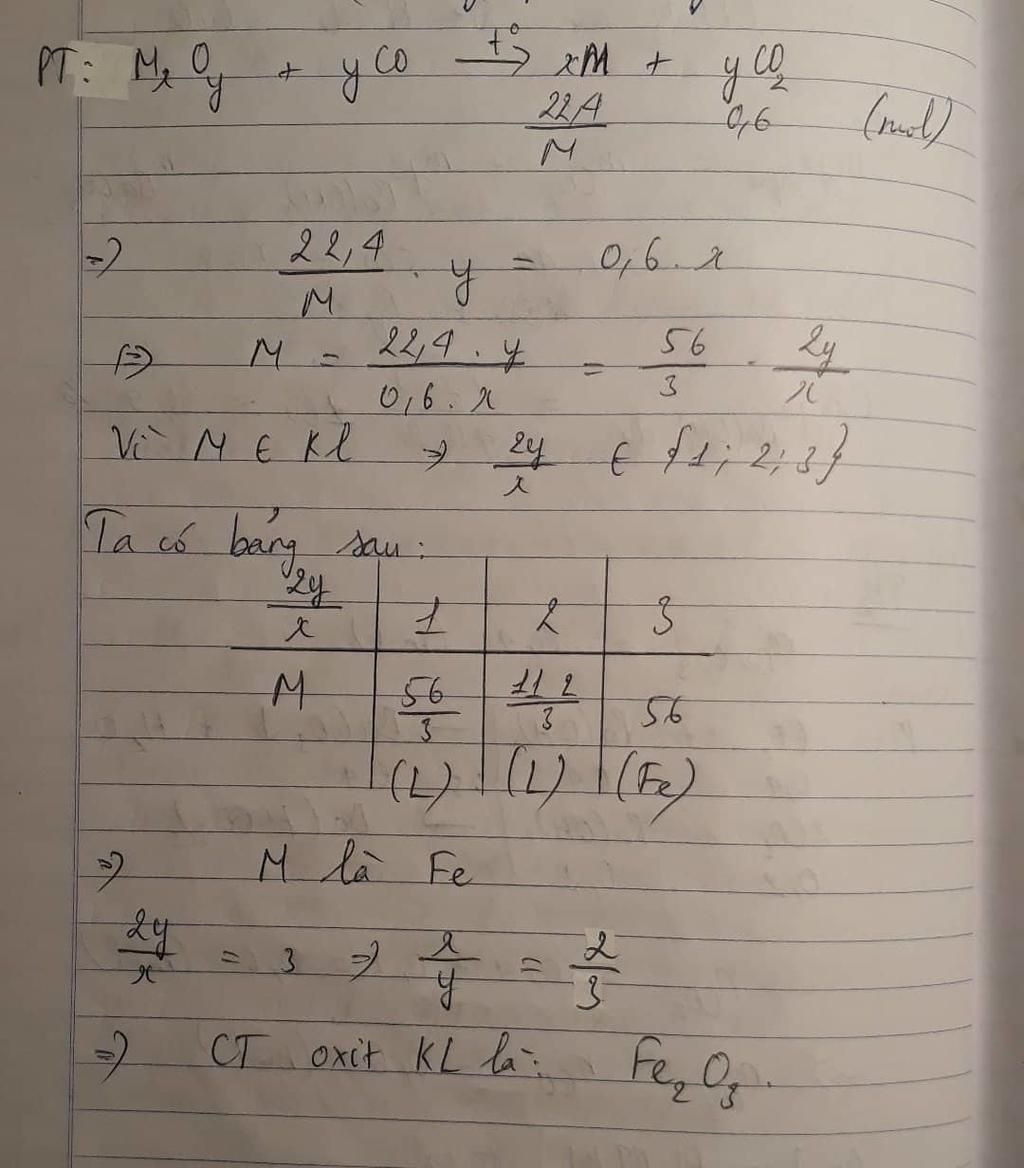 PT: MₓO_y + yCO —t°→ xM + yCO₂
22,4/M 0,6 (mol)
=> 22,4/M . y = 0,6 . x
<=> M = (22,4 . y)/(0,6 . x) = 56/3 . 2y/x
Vì M ∈ Kl => 2y/x ∈ {1; 2; 3}
Ta có bảng sau:
2y/x | 1 | 2 | 3
M | 56/3 | 112/3 | 56
(L) | (L) | (Fe)
=> M là Fe
2y/x = 3 => x/y = 2/3
=> CT oxit KL là: Fe₂O₃.